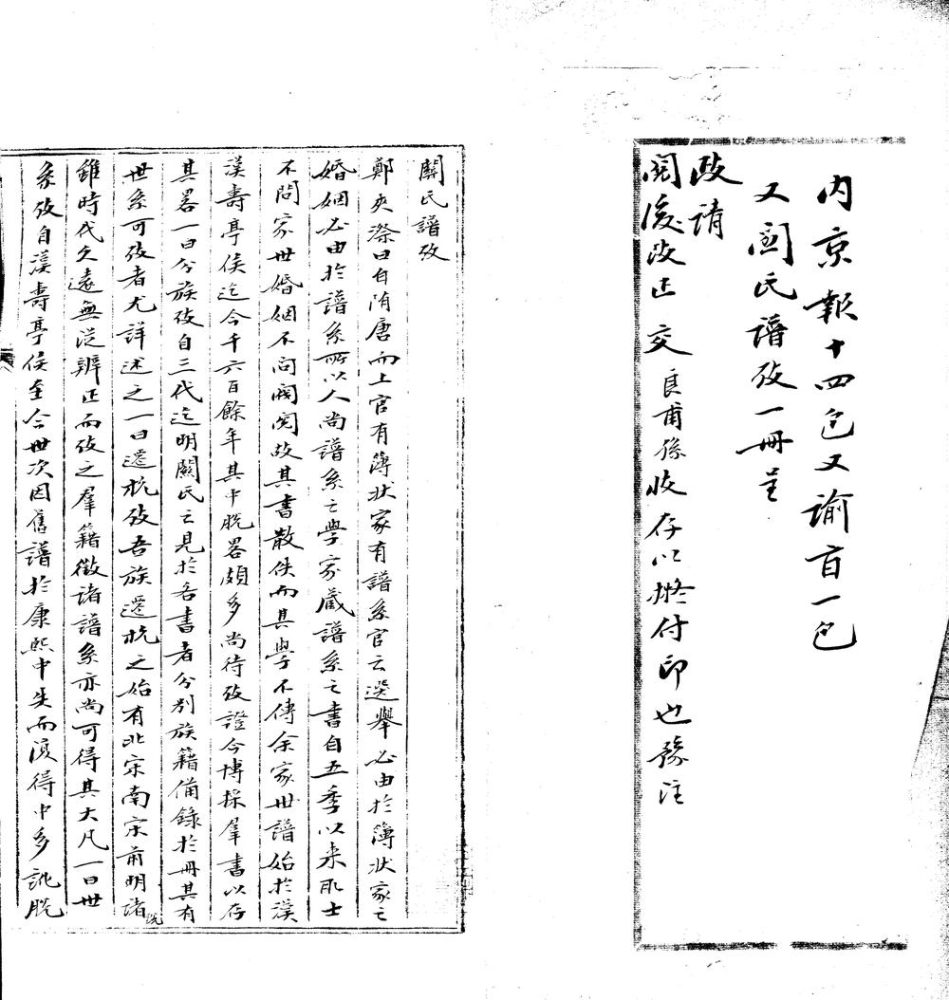 內京報十四包又諭旨一包
又関氏譜攷一冊呈
政請
閱後改正交良甫孫收存以擬付印也豫注
關氏譜攷
鄭夾漈曰自隋唐而上官有簿狀家有譜系官之選舉必由於簿狀家之
婚姻必由於譜系所以人尚譜系之學家藏譜系之書自五季以來取士
不問家世婚姻不問閥閱故其書散佚而其學不傳余家世譜始於漢
漢壽亭侯迄今千六百餘年其中脫畧頗多尚待攷證今博採羣書以存
其畧一曰分族攷自三代迄明關氏之見於各書者分別族籍備錄於冊其有
世系可攷者尤詳述之一曰遷杭攷吾族遷杭之始有北宋南宋前明諸說
雖時代久遠無從辨正而攷之羣籍徵諸譜系亦尚可得其大凡一曰世
系攷自漢壽亭侯至今世次因舊譜於康熙中失而復得中多訛脫